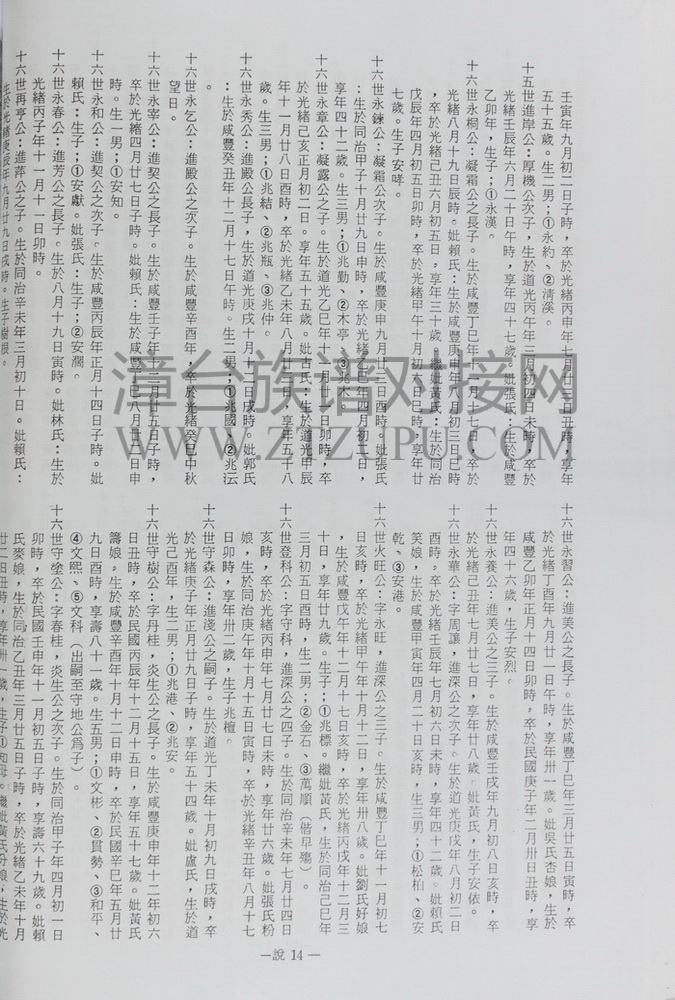 壬寅年九月初二日子時，卒於光緒丙申年七月廿一日丑時，享年
五十五歲。生二男；①永約、②清溪。
十五世進岸公：厚機公次子，生於道光丙午年三月初四日未時，卒於
光緒壬辰年六月二十日午時，享年四十七歲。妣張氏：生於咸豐
乙卯年，生子；①永漢。
十六世永桐公：凝霜公之長子。生於咸豐丁巳年八月十七日，卒於
光緒八月十九日辰時。妣賴氏：生於咸豐庚申年八月初三日巳時
，卒於光緒己丑六月初五日，享年三十歲。繼妣黃氏：生於同治
戊辰年四月初五日卯時，卒於光緒甲午十月初六日巳時，享年廿
七歲。生子安哮。
十六世永鍊公：凝霜公次子。生於咸豐庚申九月廿三日酉時。妣張氏
：生於同治甲子十月廿九日申時，卒於光緒乙巳年四月初二日，
享年四十二歲。生三男；①兆勤、②木亭、③兆木。
十六世永章公：凝露公之子。生於道光乙巳年十月廿一日卯時，卒
於光緒己亥正月初二日。享年五十五歲。妣古氏：生於道光甲辰
年十一月廿八日酉時，卒於光緒乙未年八月廿二日，享年五十八
歲。生三男；①兆結、②兆瓶、③兆仲。
十六世永秀公：進殿公長子，生於道光庚戌十月十一日戌時。妣郭氏
：生於咸豐癸丑年十二月十七日午時。生二男；①兆國、②兆沄
。
十六世永乞公：進殿公之次子。生於咸豐辛酉年，卒於光緒癸巳中秋
望日。
十六世永宰公：進契公之長子。生於咸豐壬子年十二月廿五日子時，
卒於光緒四月廿七日子時。妣賴氏：生於咸豐丁巳八月廿二日申
時。生一男；①安知。
十六世永和公：進契公之次子。生於咸豐丙辰年正月十四日子時。妣
賴氏：生子；①安獻。妣張氏：生子；②安瀾。
十六世永春公：進芳公之長子。生於八月十九日寅時。妣林氏：生於
光緒丙子年十一月十一日卯時。
十六世再亨公：進萍公之子。生於同治辛未年三月初十日。妣賴氏：
生於光緒庚辰年九月廿九日戌時。生子樹根。
十六世永習公：進美公之長子。生於咸豐丁巳年三月廿五日寅時，卒
於光緒丁酉年九月廿一日午時，享年卅一歲。妣吳氏杏娘，生於
咸豐乙卯年正月十四日卯時，卒於民國庚子年二月卅日丑時，享
年四十六歲，生子安烈。
十六世永養公：進美公之三子。生於咸豐壬戌年九月初八日亥時，卒
於光緒己丑年七月廿七日，享年廿八歲，妣黃氏，生子安依。
十六世永華公：字周讓，進深公之次子。生於道光庚戌年八月初二日
酉時，卒於光緒壬辰年七月初六日未時，享年四十二歲。妣賴氏
笑娘，生於咸豐甲寅年四月二十日亥時，生三男；①松柏、②安
乾、③安港。
十六世火旺公：字永旺，進深公之三子。生於咸豐丁巳年十一月初七
日亥時，卒於光緒甲午年十月十二日，享年卅八歲。妣劉氏好娘
，生於咸豐戊午年十二月十七日亥時，卒於光緒丙戌年十二月三
十日，享年廿九歲。生子；①兆標。繼妣黃氏，生於同治己巳年
三月初五日酉時，生二男；②金石、③萬順（偕早殤）。
十六世登科公：字守科，進深公之四子。生於同治辛未年七月廿四日
亥時，卒於光緒丙申年七月廿七日未時，享年廿六歲。妣張氏粉
娘，生於同治庚午年十月十五日寅時，卒於光緒辛丑年八月十七
日卯時，享年卅二歲，生子兆檀。
十六世守森公：進淺公之嗣子。生於道光丁未年十月初九日戌時，卒
於光緒庚子年正月廿九日子時，享年五十四歲。妣盧氏，生於道
光己酉年，生二男；①兆港、②兆安。
十六世守樹公：字丹桂，炎生公之長子。生於咸豐庚申年十二年初六
日丑時，卒於民國丙辰年十二月十五日，享年五十七歲。妣黃氏
籌娘，生於咸豐辛酉年十月十二日申時，卒於民國辛巳年五月廿
九日酉時，享壽八十一歲。生五男；①文彬、②貫勢、③和平、
④文熙、⑤文科（出嗣至守地公爲子）。
十六世守塗公：字春桂，炎生公之次子。生於同治甲子年四月初一日
卯時，卒於民國壬申年十一月初五日子時，享壽六十九歲。妣賴
氏麥娘，生於同治乙丑年三月廿五日子時，卒於光緒乙未年十月
廿二日丑時，享年卅一歲，生子①知母。繼妣黃氏份娘，生於光
—說 14—
漳台族谱对接网
WWW.ZTZUPU.COM